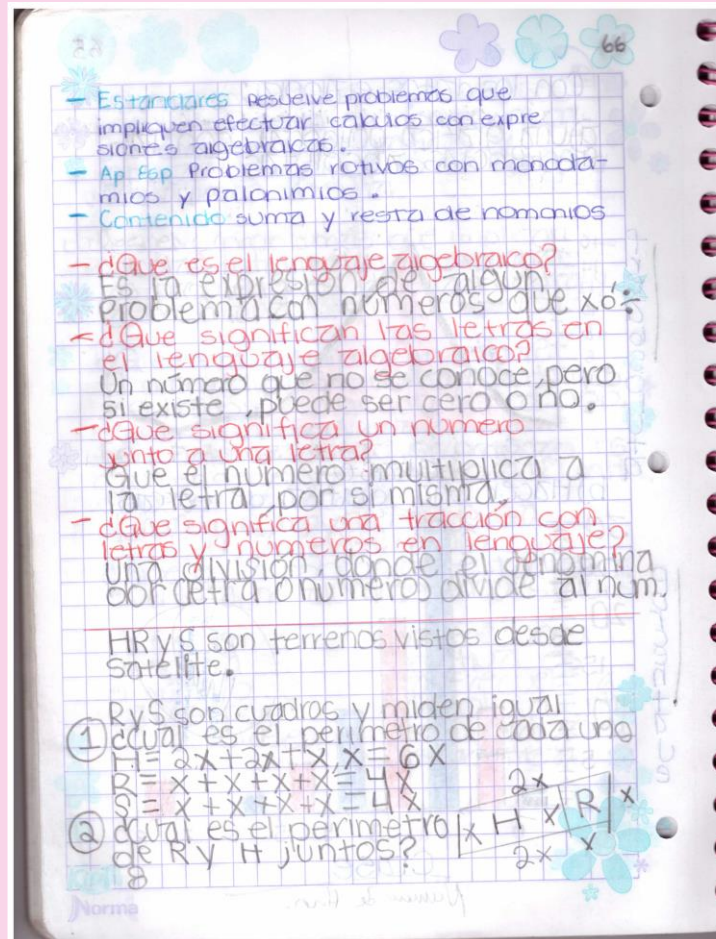 66
- Estandares Resuelve problemas que
impliquen efectuar calculos con expre
siones algebraicas.
- Ap Esp Problemas rotivos con monoda-
mios y palonimios.
- Contenido suma y resta de nomonios
- ¿Que es el lenguaje algebraico?
Es la expresión de algun
problema con números que x ó ÷
- ¿Que significan las letras en
el lenguaje algebraico?
Un número que no se conoce, pero
si existe, puede ser cero o no.
- ¿Que significa un numero
junto a una letra?
Que el numero multiplica a
la letra por si misma.
- ¿Que significa una fracción con
letras y numeros en lenguaje?
Una división, donde el denomina
dor (letra o numero) divide al num.
HRyS son terrenos vistos desde
satelite.
RyS son cuadros y miden igual
① ¿cual es el perimetro de cada uno
H = 2x+2x+x,x = 6x
R = x+x+x+x = 4x
S = x+x+x+x = 4x
② ¿cual es el perimetro
de R y H juntos?
8
2x
x H x R x
2x x
Norma